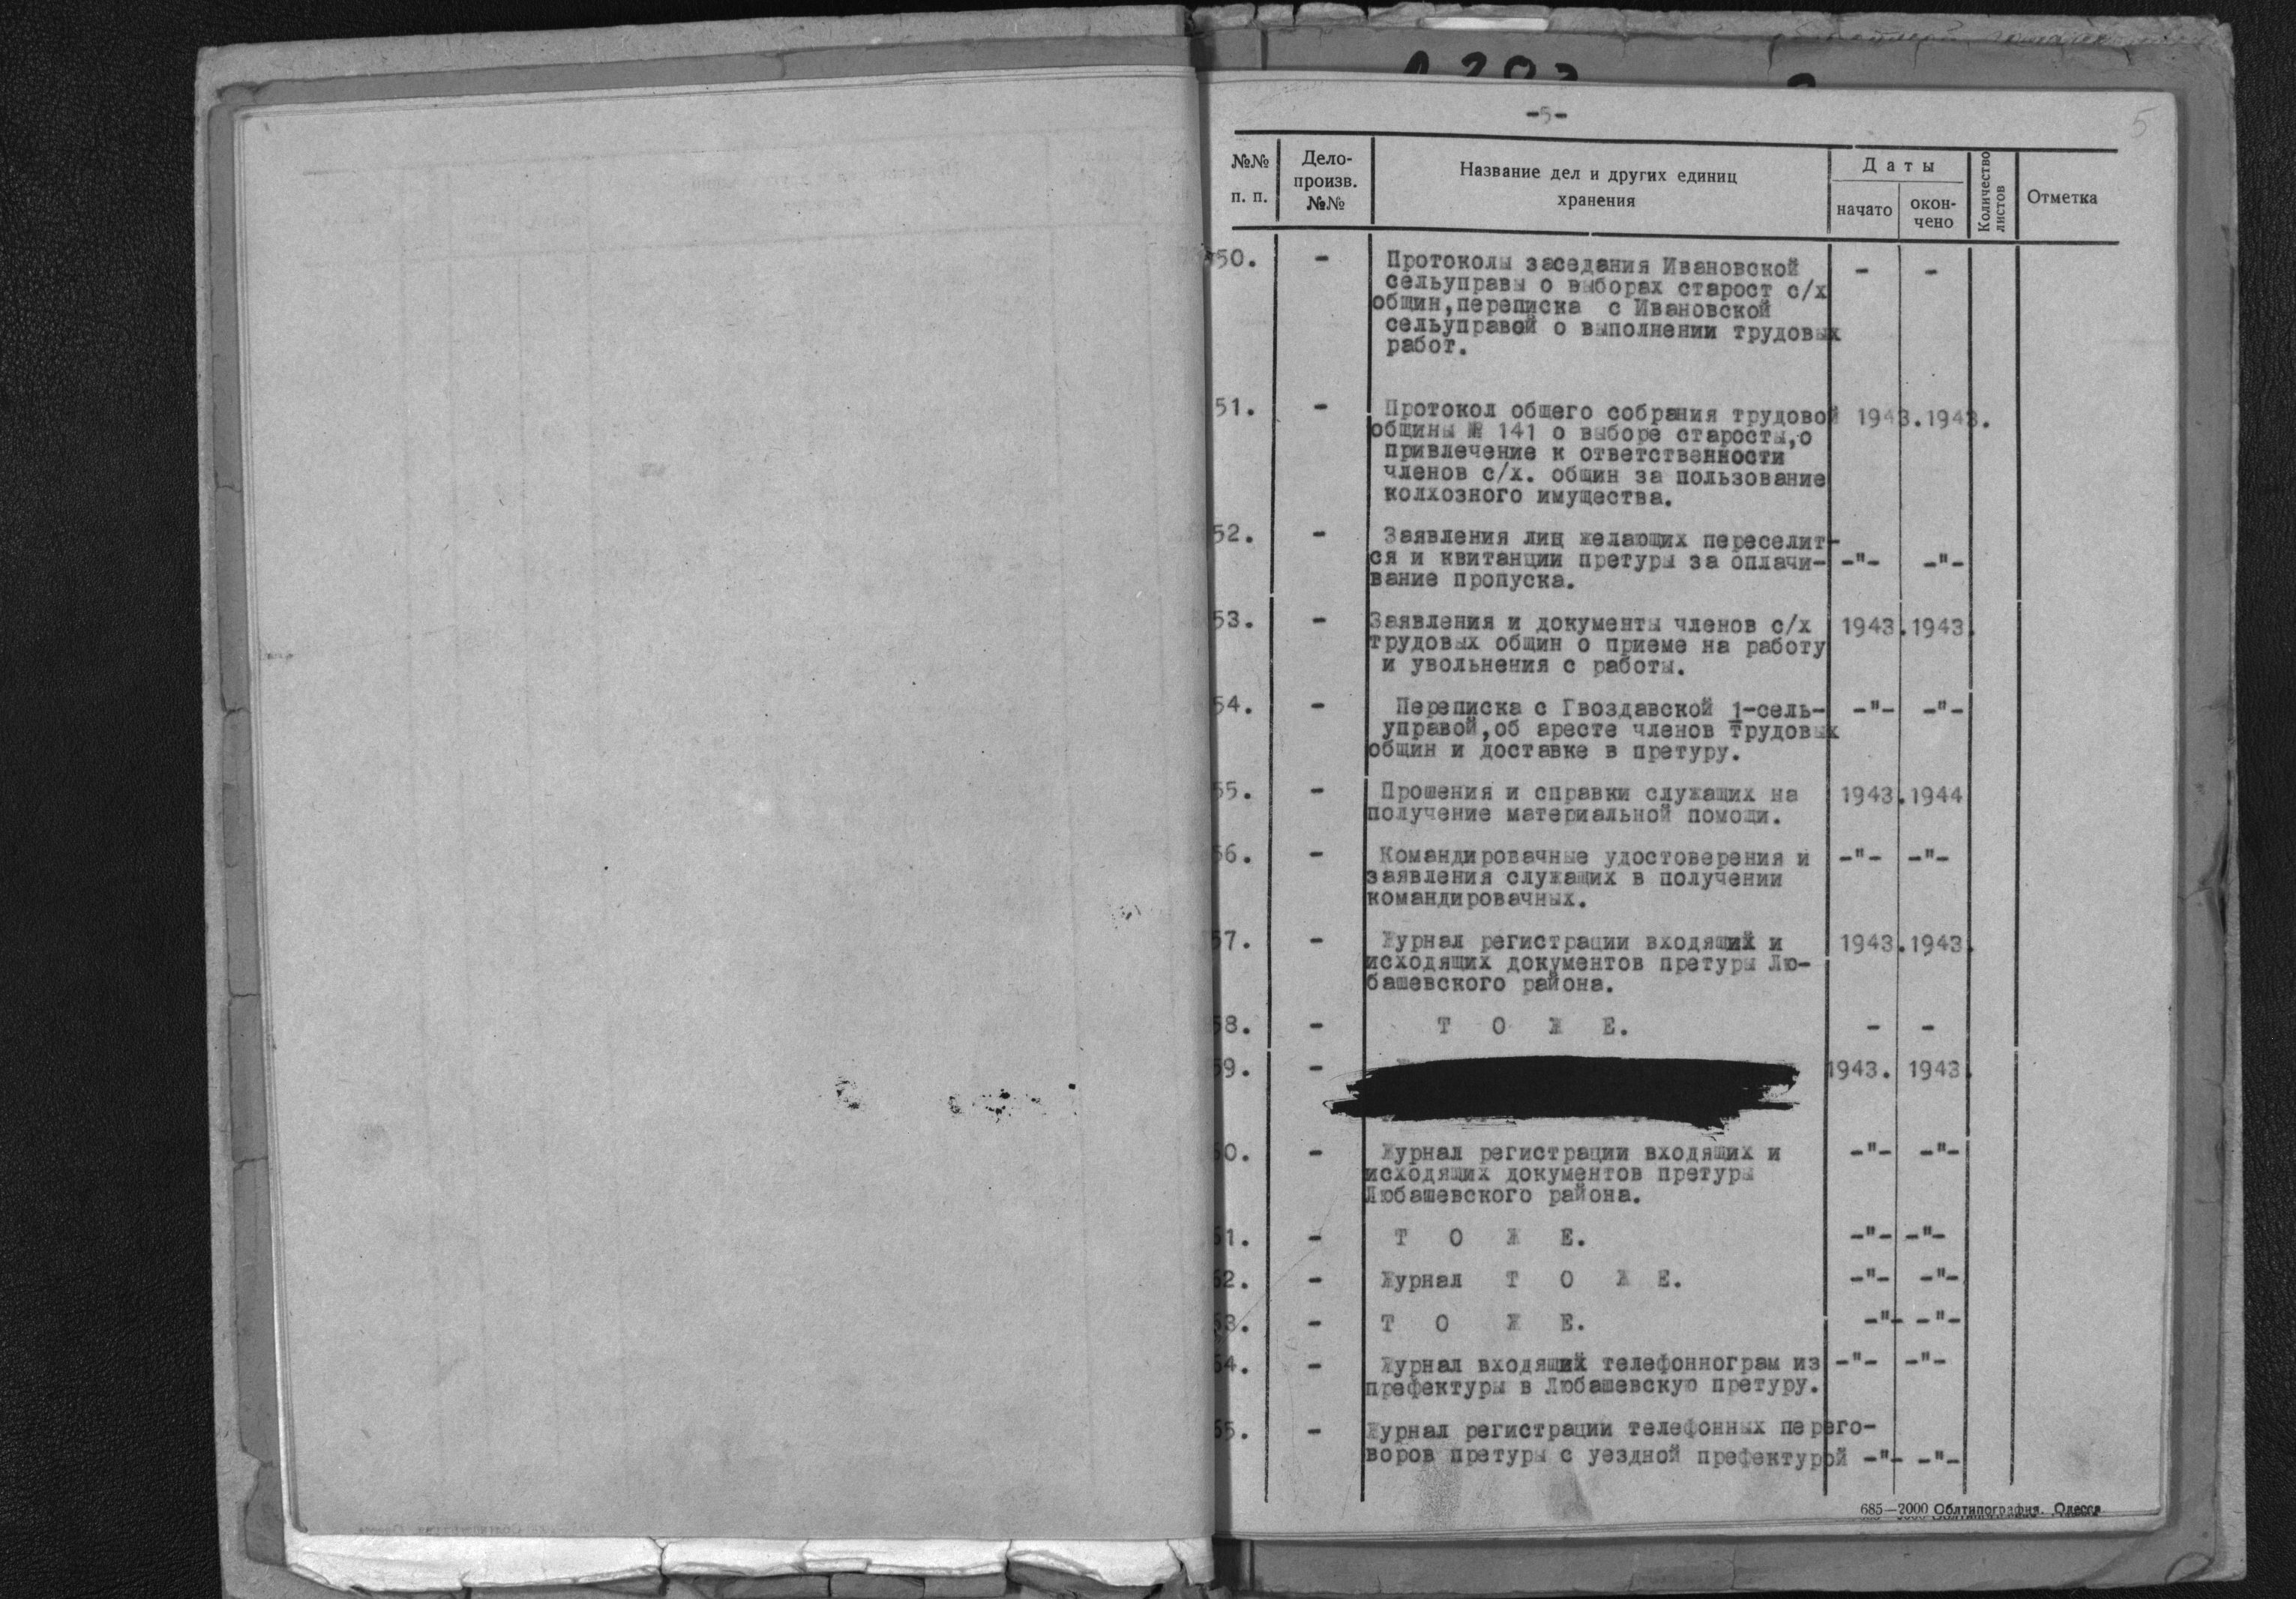 -5-
5
№№ п. п.
Дело-
произв.
№№
Название дел и других единиц
хранения
Даты
начато
окон-
чено
Количество
листов
Отметка
50. - Протоколы заседания Ивановской - -
сельуправы о выборах старост с/х
общин,переписка с Ивановской
сельуправой о выполнении трудовых
работ.
51. - Протокол общего собрания трудовой 1943.1943.
общины № 141 о выборе старосты,о
привлечение к ответственности
членов с/х. общин за пользование
колхозного имущества.
52. - Заявления лиц желающих переселит-
ся и квитанции претуры за оплачи- -"- -"-
вание пропуска.
53. - Заявления и документы членов с/х 1943.1943.
трудовых общин о приеме на работу
и увольнения с работы.
54. - Переписка с Гвоздавской 1-сель- -"- -"-
управой,об аресте членов трудовых
общин и доставке в претуру.
55. - Прошения и справки служащих на 1943.1944
получение материальной помощи.
56. - Командировачные удостоверения и -"- -"-
заявления служащих в получении
командировачных.
57. - Журнал регистрации входящий и 1943.1943.
исходящих документов претуры Лю-
башевского района.
58. - Т О Ж Е. - -
59. - 1943. 1943.
60. - Журнал регистрации входящих и -"- -"-
исходящих документов претуры
Любашевского района.
61. - Т О Ж Е. -"- -"-
62. - Журнал Т О Ж Е. -"- -"-
63. - Т О Ж Е. -"- -"-
64. - Журнал входящий телефоннограм из -"- -"-
префектуры в Любашевскую претуру.
65. - Журнал регистрации телефонных перего-
воров претуры с уездной префектурой -"- -"-
685—2000 Облтипография. Одесса